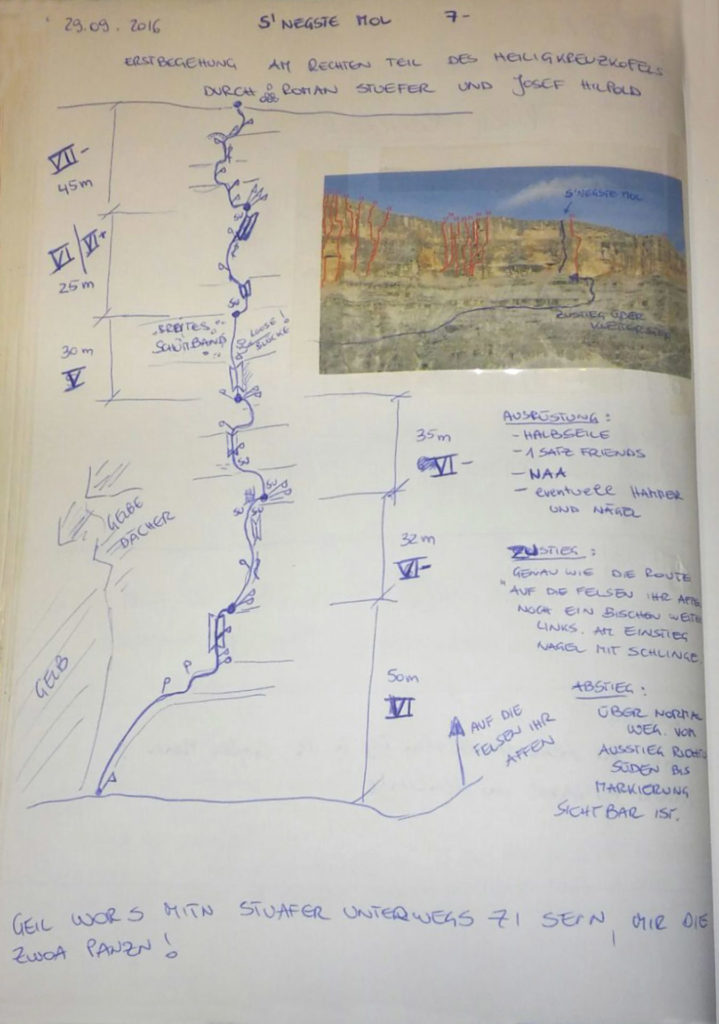 29.09.2016 S'NEGSTE MOL 7-
ERSTBEGEHUNG AM RECHTEN TEIL DES HEILIGKREUZKOFELS
DURCH ROMAN STUEFER UND JOSEF HILPOLD
VII-
45m
VI/VI+
25m
30m
V
BREITES
SCHUTTBAND
LOOSE!
BLÖCKE
S'NEGSTE MOL
ZUSTIEG ÜBER
KLETTERSTEIG
35m
VI-
32m
VI-
50m
VI
GELBE
DÄCHER
GELB
AUF DIE
FELSEN IHR
AFFEN
AUSRÜSTUNG:
- HALBSEILE
- 1 SATZ FRIENDS
- NAA
- eventuell HAMMER
UND NÄGEL
ZUSTIEG:
GENAU WIE DIE ROUTE
"AUF DIE FELSEN IHR AFFE
NOCH EIN BISCHEN WEITE
LINKS. AM EINSTIEG
NAGEL MIT SCHLINGE.
ABSTIEG:
ÜBER NORMAL
WEG. VOM
AUSSTIEG RICHTU
SÜDEN BIS
MARKIERUNG
SICHTBAR IST.
GEIL WORS MITN STUAFER UNTERWEGS ZI SEIN, MIR DIE
ZWOA PANZN!